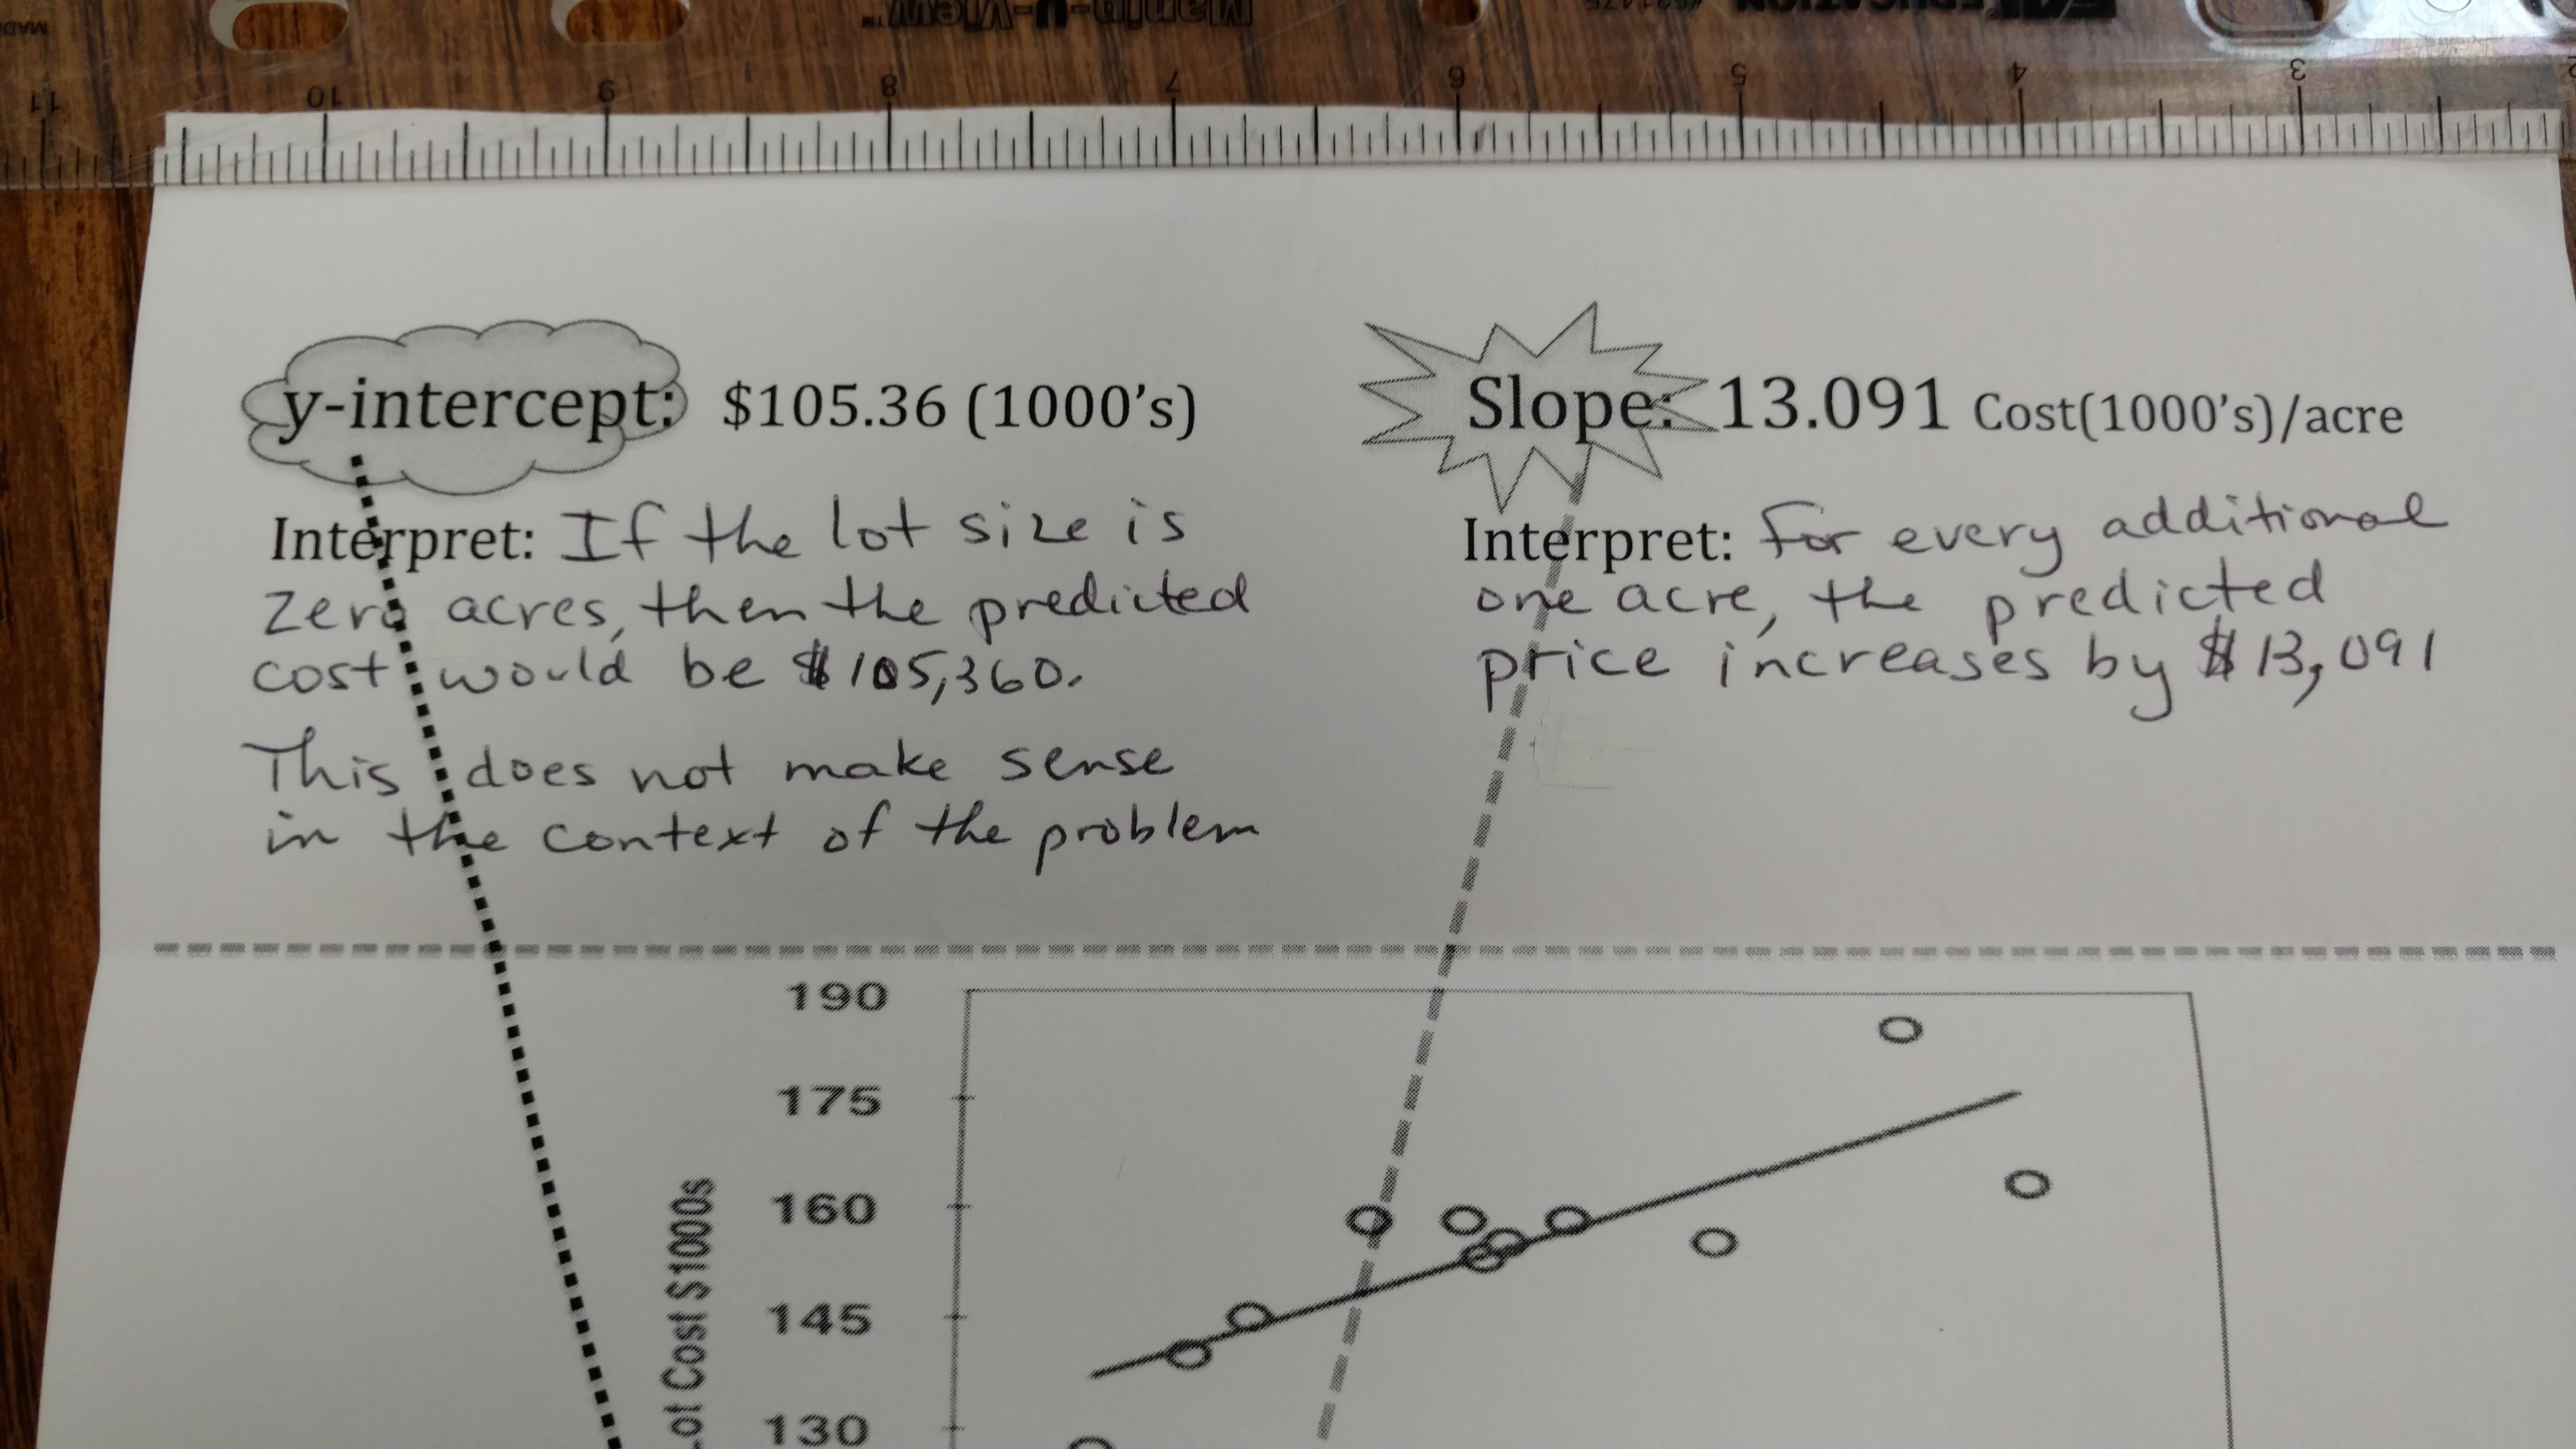 Manip-U-View™
EDUCATION
11 10 9 8 7 6 5 4 3 2
y-intercept: $105.36 (1000's)
Interpret: If the lot size is
zero acres, then the predicted
cost would be $105,360.
This does not make sense
in the context of the problem
Slope: 13.091 Cost(1000's)/acre
Interpret: For every additional
one acre, the predicted
price increases by $13,091
190
175
160
145
130
Cost $1000s